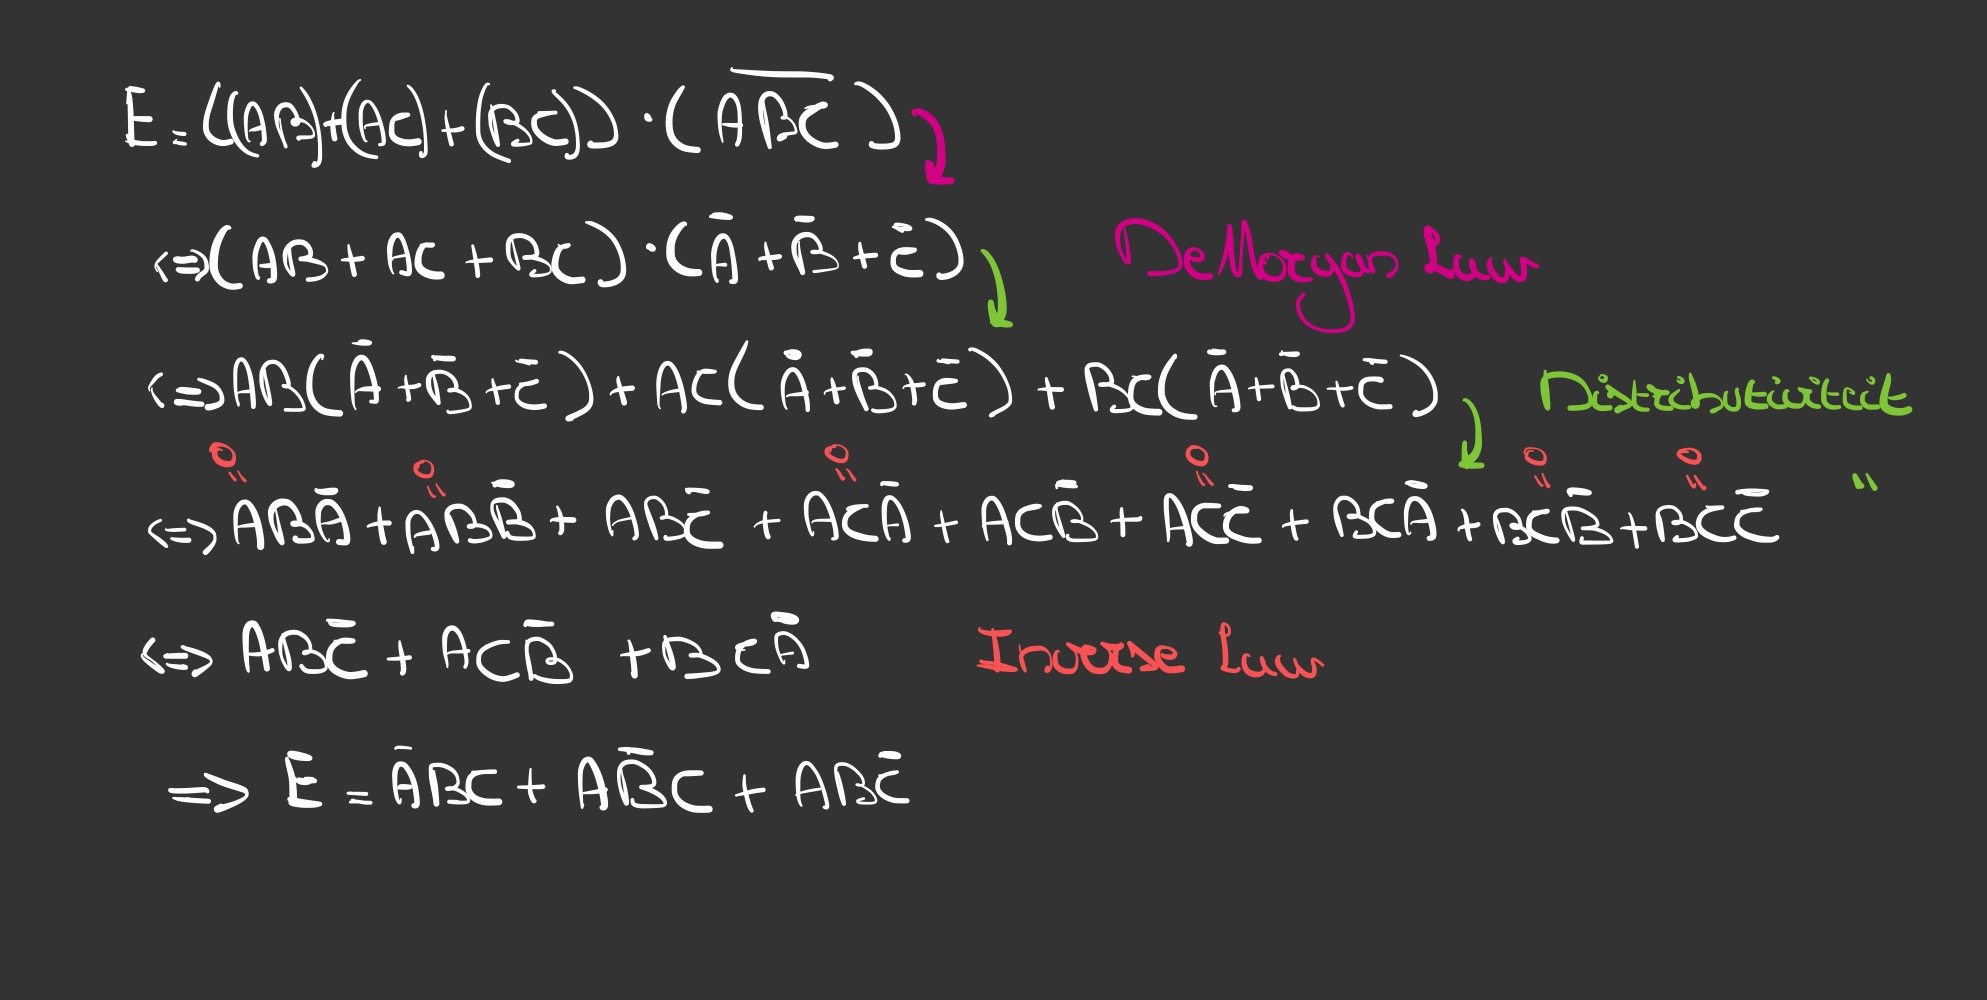 E = ((AB)+(AC)+(BC)) · (A̅B̅C̅)
<=> (AB + AC + BC) · (Ā + B̄ + C̄) De Morgan Law
<=> AB(Ā + B̄ + C̄) + AC(Ā + B̄ + C̄) + BC(Ā + B̄ + C̄) Distributivität
0 0 0 0 0 0
" " " " " " "
<=> ABĀ + ABB̄ + ABC̄ + ACĀ + ACB̄ + ACC̄ + BCĀ + BCB̄ + BCC̄
<=> ABC̄ + ACB̄ + BCĀ Inverse Law
=> E = ĀBC + AB̄C + ABC̄